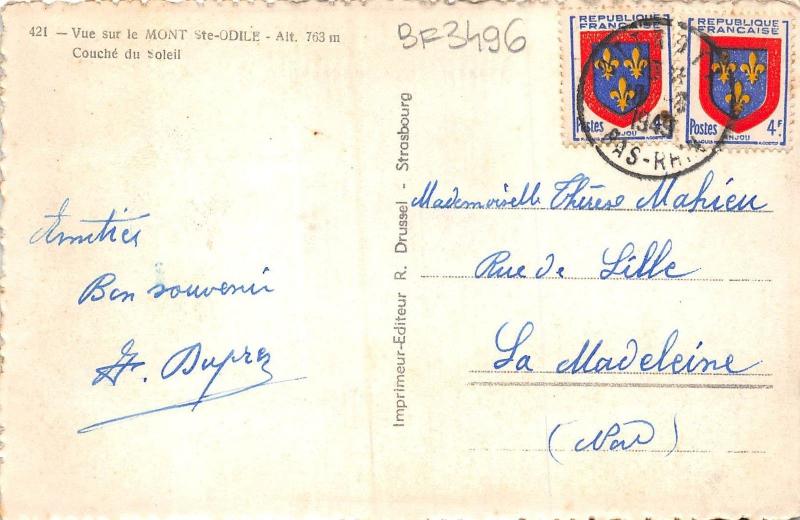 421 - Vue sur le MONT Ste-ODILE - Alt. 763 m
Couché du Soleil
BF3496
REPUBLIQUE FRANCAISE
Postes
ANJOU
REPUBLIQUE FRANCAISE
Postes
4F
ANJOU
1949
BAS-RHIN
Imprimeur-Editeur R. Drussel - Strasbourg
Amitiés
Bon souvenir
H. Duprez
Mademoiselle Thérèse Mahieu
Rue de Lille
La Madeleine
(Nord)